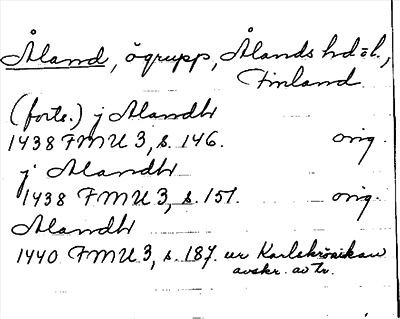 Åland, ögrupp, Ålands hd o l.,
Finland.
(forts.) j Alandh
1438 FMU 3, s. 146. orig.
j Alandh
1438 FMU 3, s. 151. orig.
Alandh
1440 FMU 3, s. 187. ur Karlskrönikan
avskr. av tr.